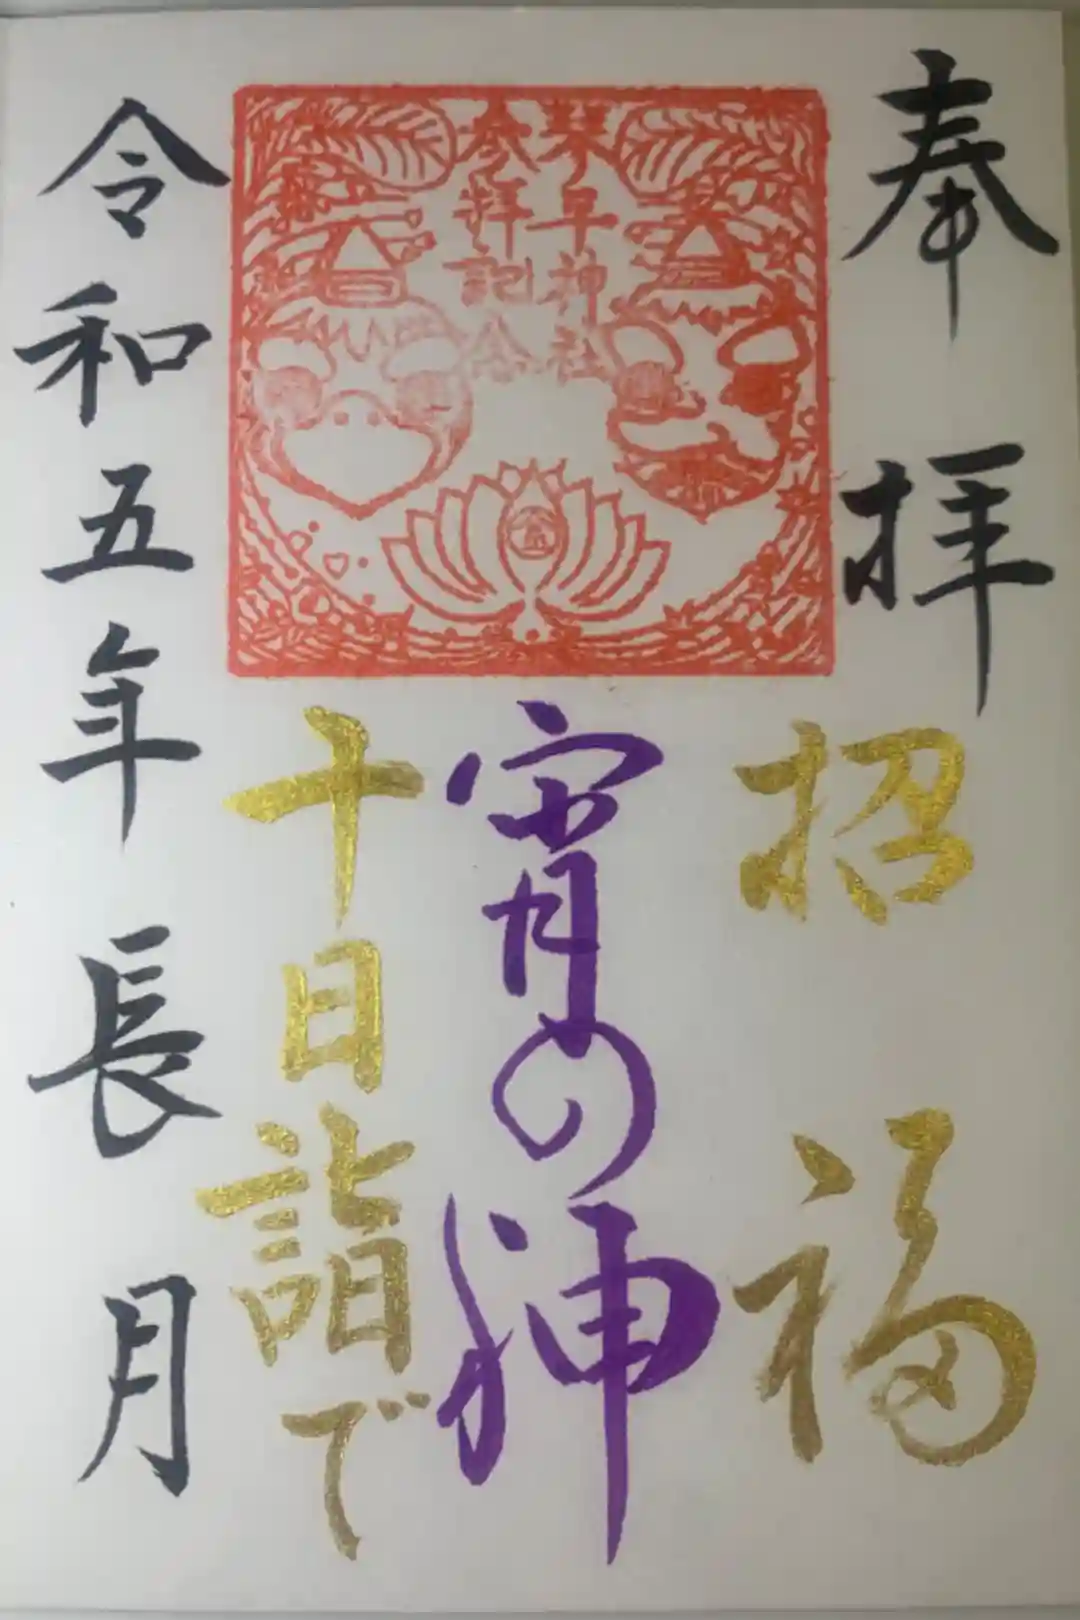 奉拝
招福
琴平神社
参拝記念
宵の神
十日詣で
令和五年長月